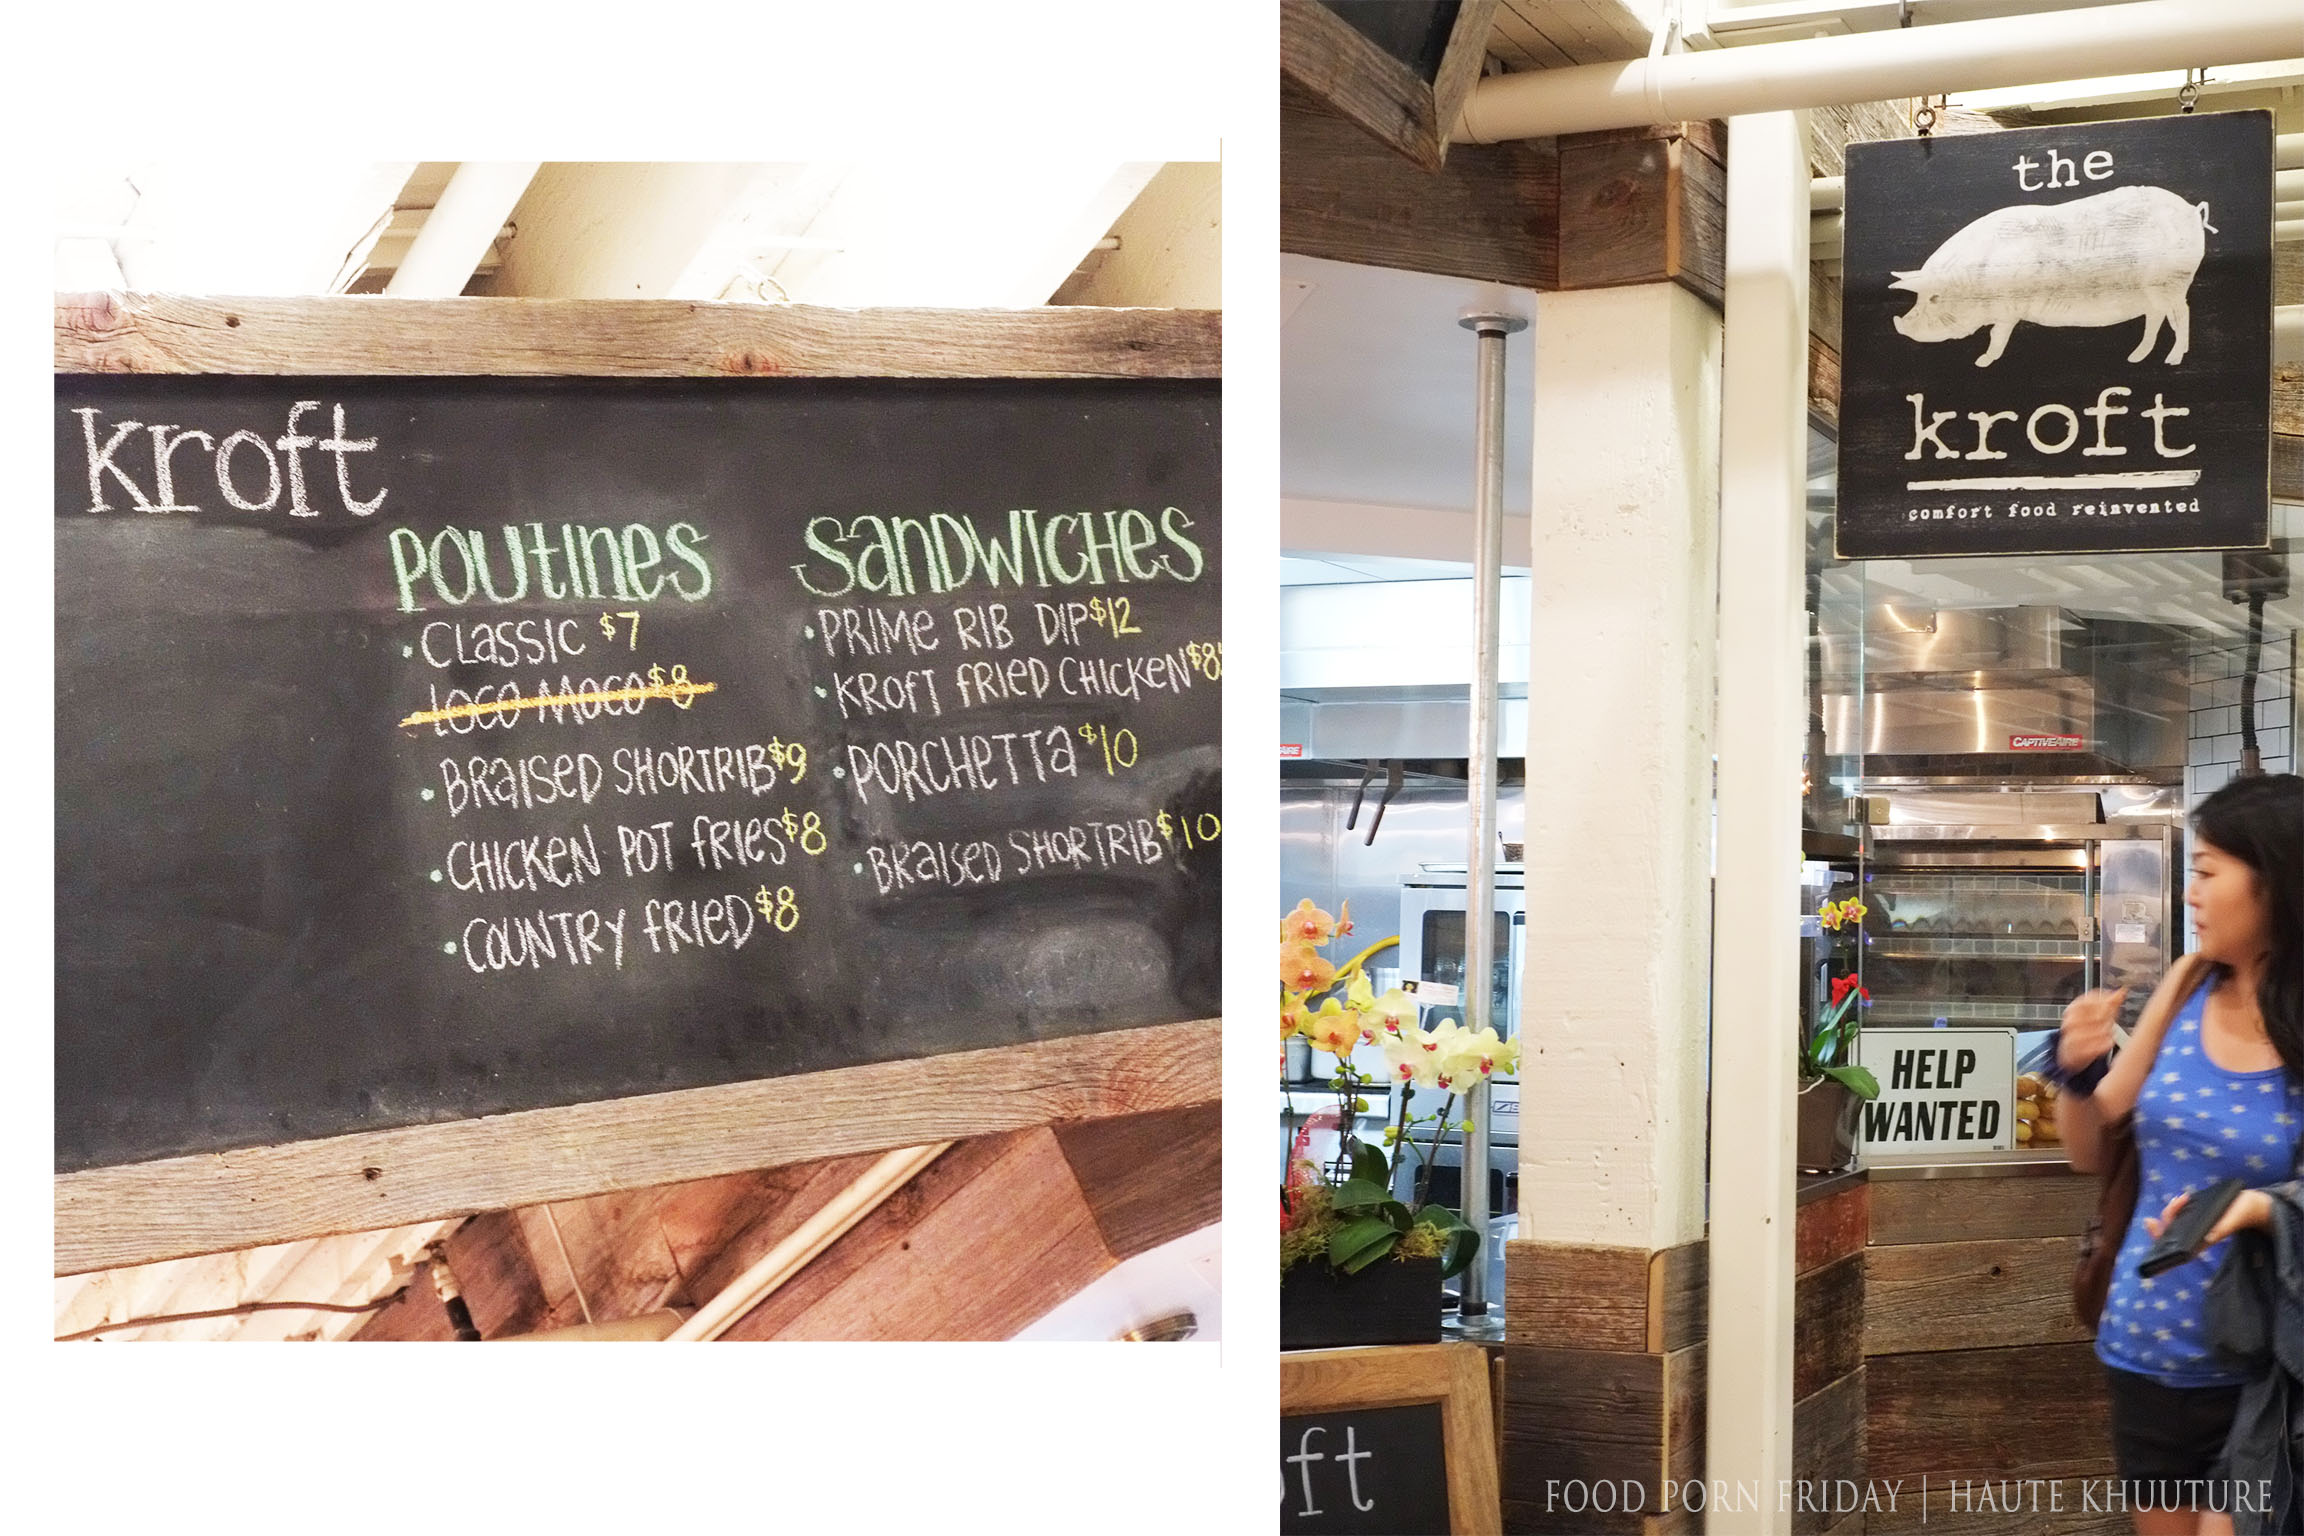 kroft
POUTINES
CLASSIC $7
LOCO MOCO $8
BRAISED SHORTRIB $9
CHICKEN POT FRIES $8
COUNTRY FRIED $8
SANDWICHES
PRIME RIB DIP $12
KROFT FRIED CHICKEN $8
PORCHETTA $10
BRAISED SHORTRIB $10
the
kroft
comfort food reinvented
CAPTIVEAIRE
HELP
WANTED
oft
FOOD PORN FRIDAY | HAUTE KHUUTURE